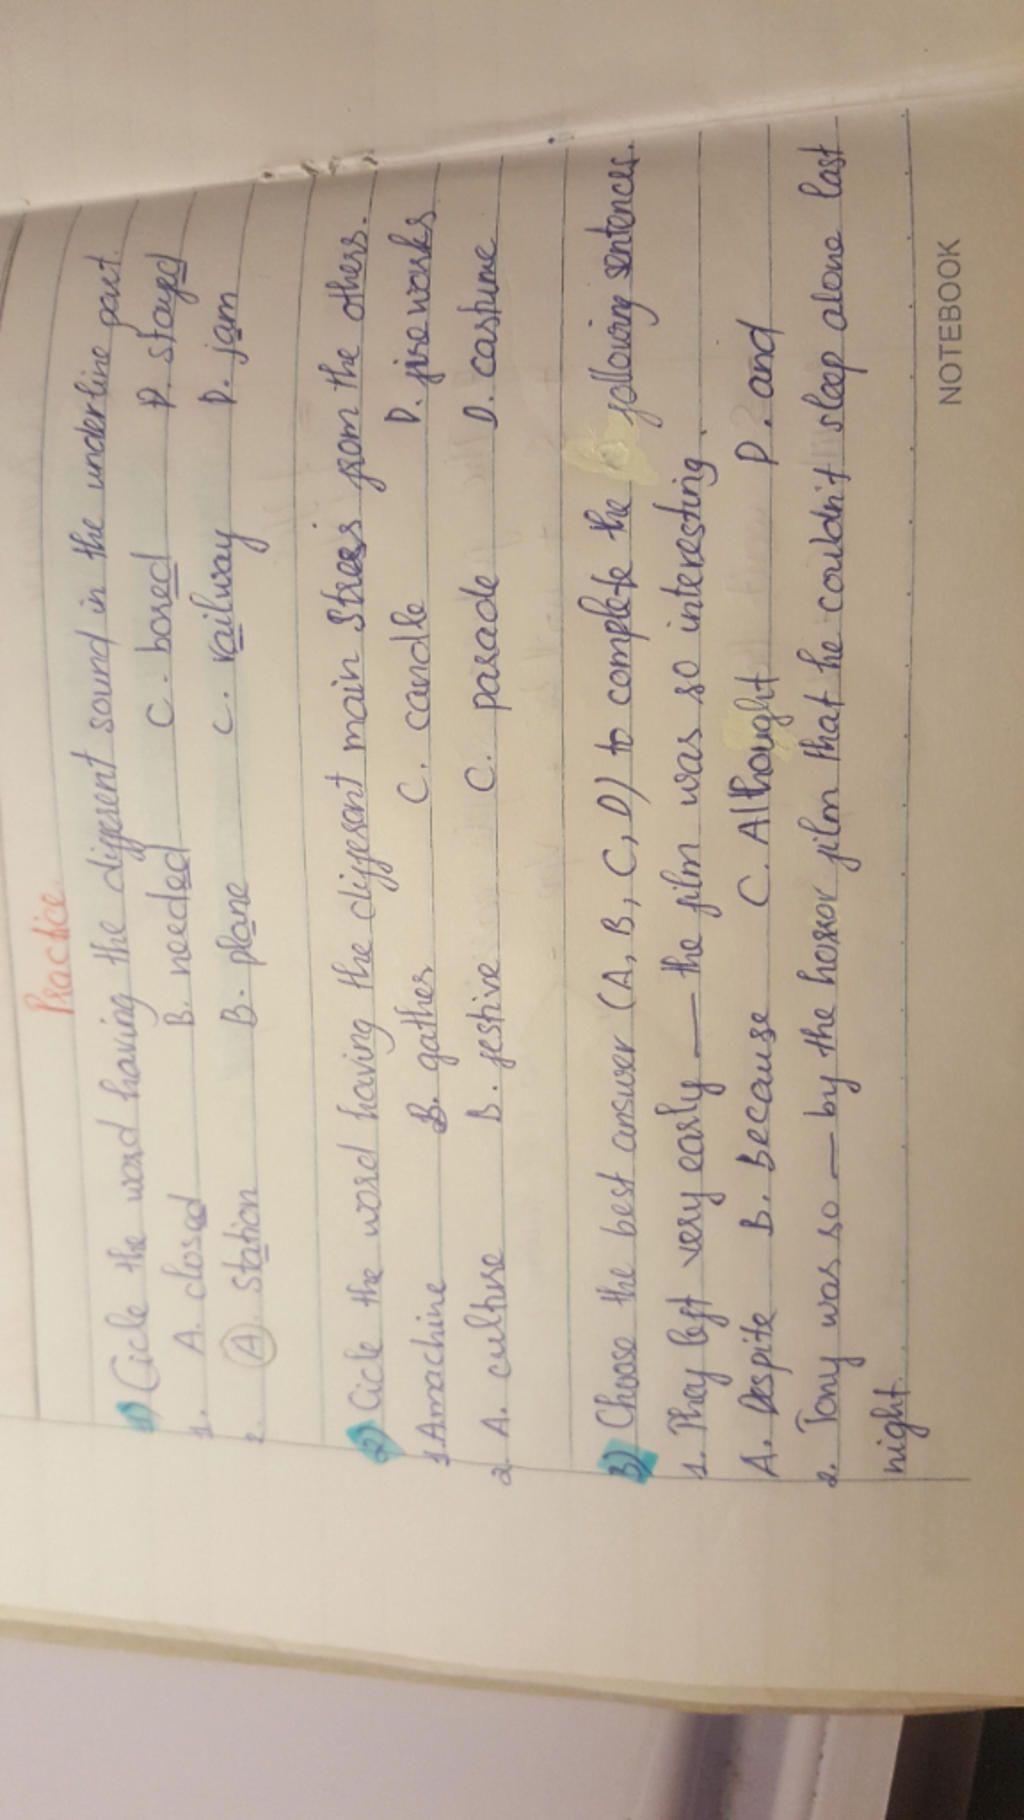 Practice.
1) Cicle the word having the different sound in the underline part.
1. A. closed B. needed C. bored D. stayed
2. A. station B. plane C. railway D. jam
2) Cicle the word having the different main stress from the others.
1. A machine B. gather C. candle D. fireworks
2. A. culture B. festive C. parade D. costume
3) Choose the best answer (A, B, C, D) to complete the following sentences.
1. They left very early — the film was so interesting.
A. Despite B. Because C. Althought D. and
2. Tony was so — by the horror film that he couldn't sleep alone last
night.
NOTEBOOK